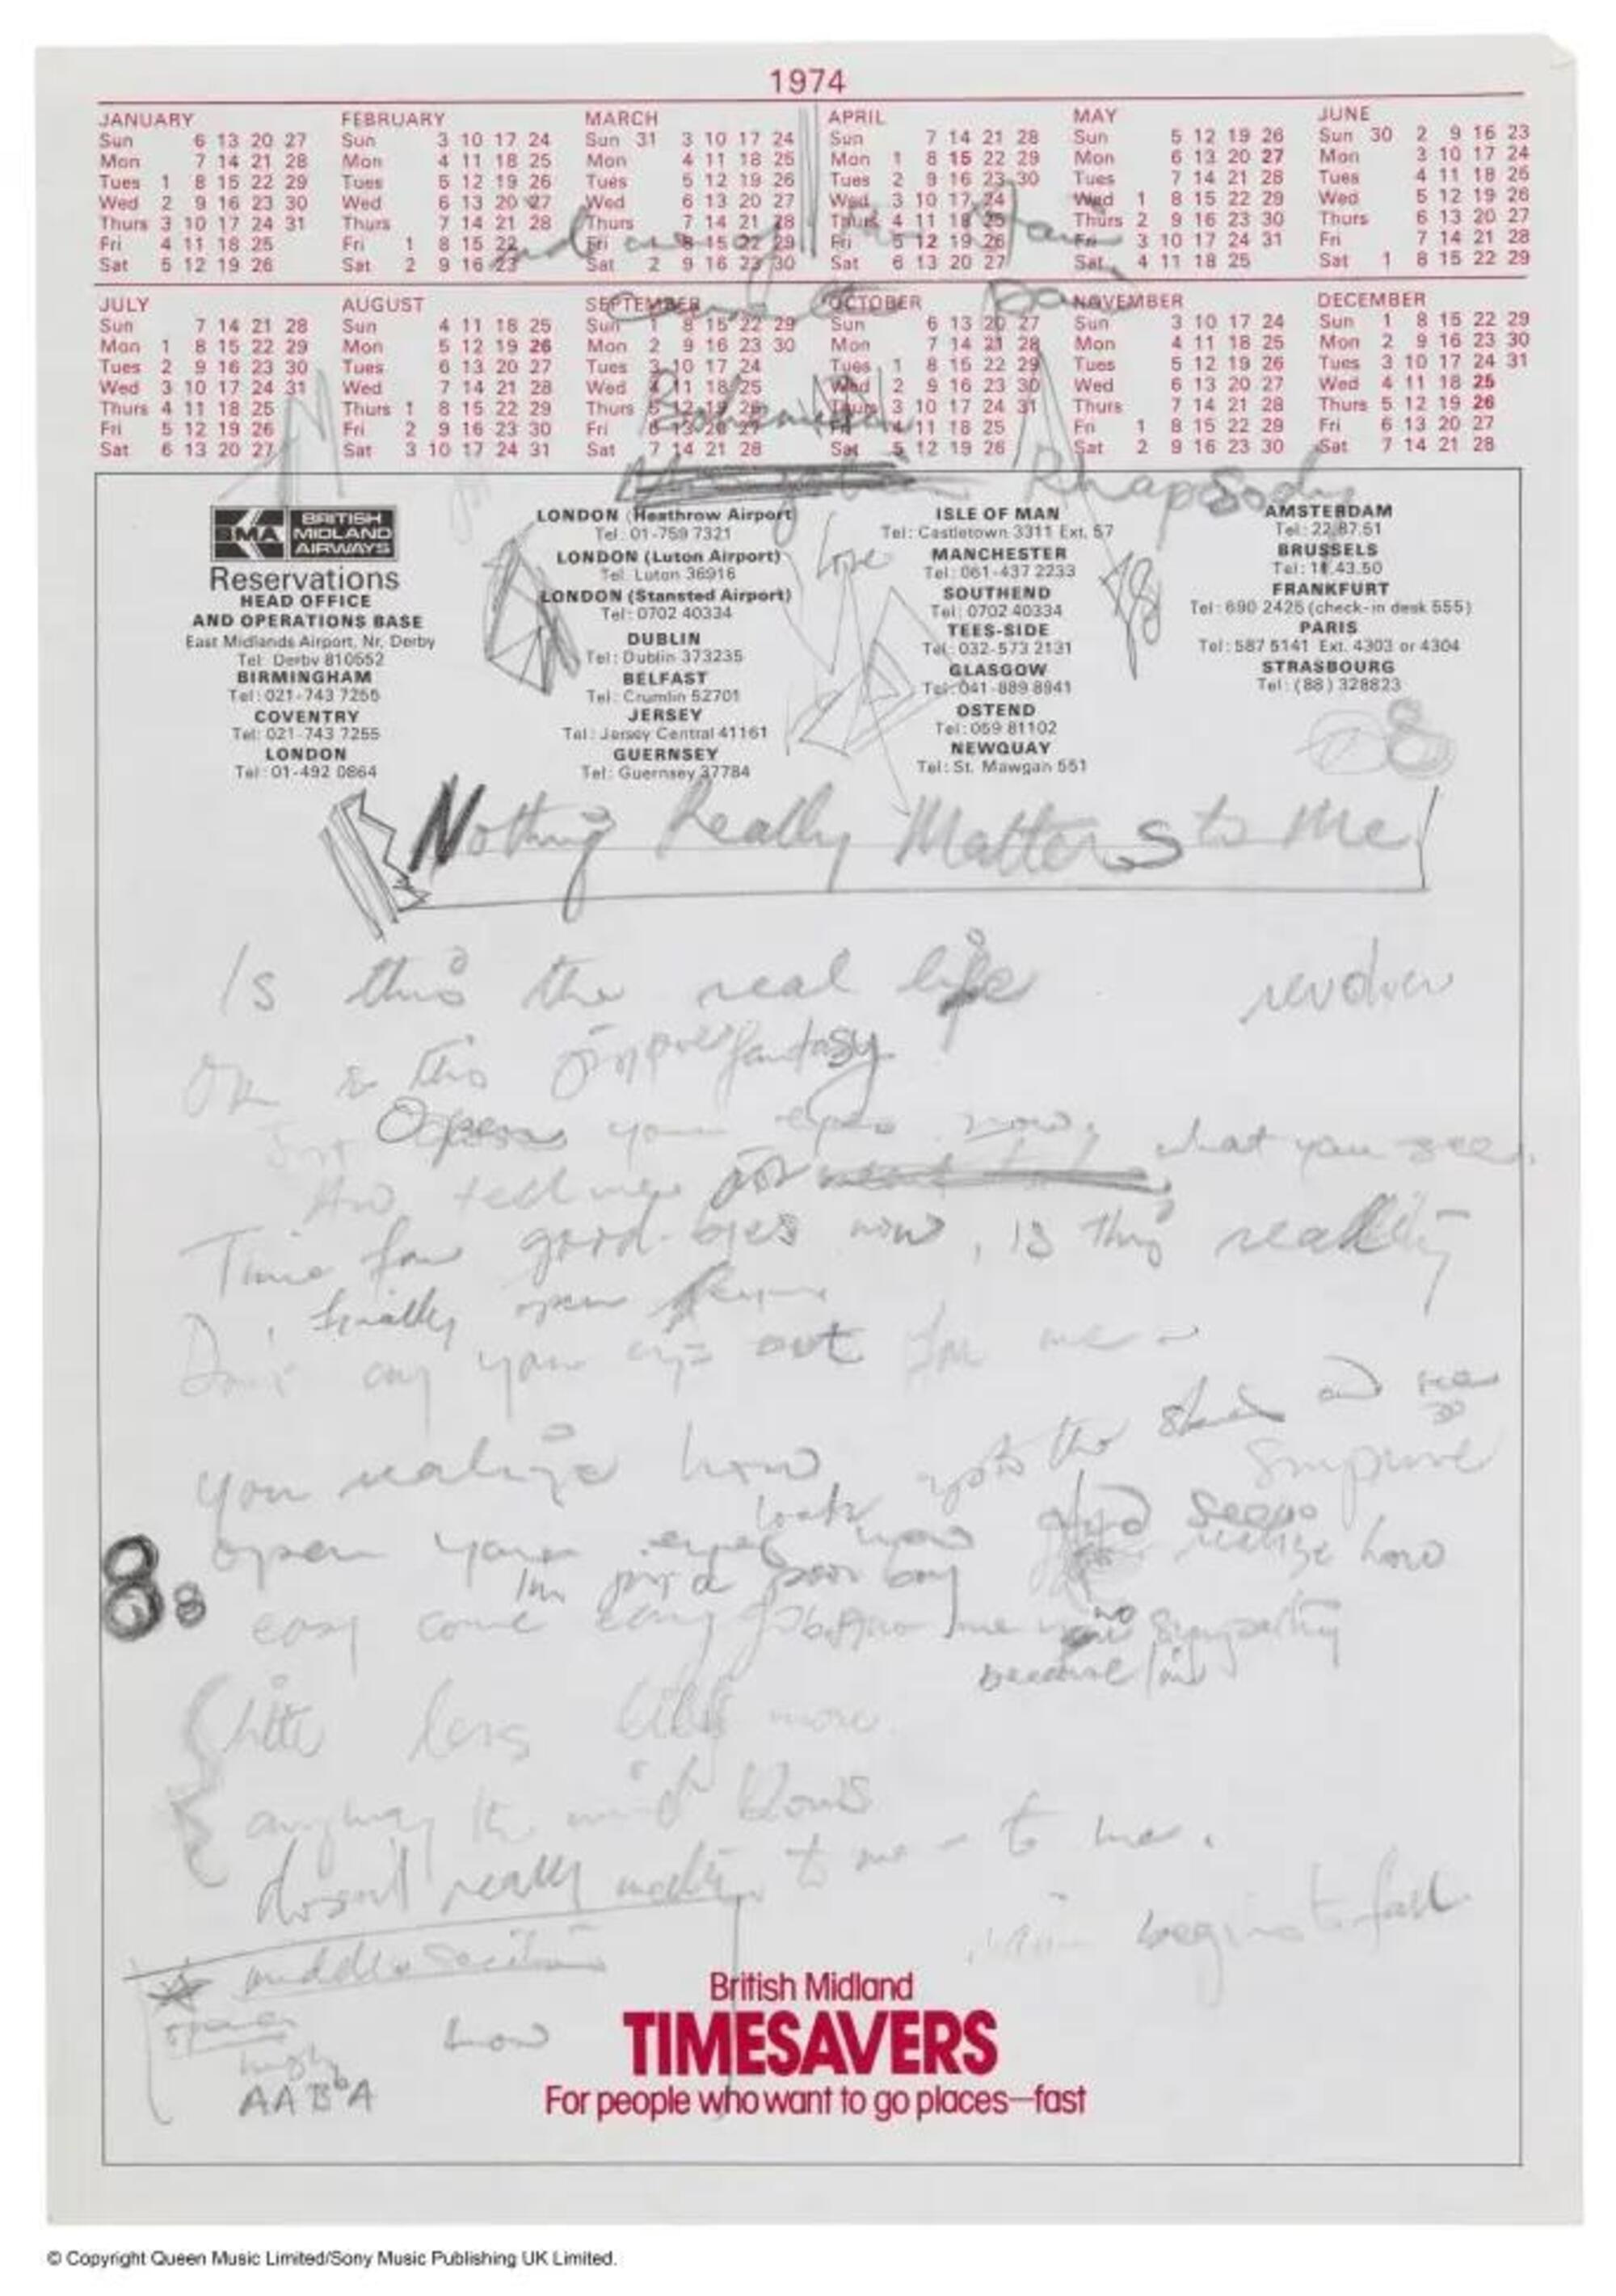 1974
JANUARY FEBRUARY MARCH APRIL MAY JUNE
Sun 6 13 20 27 Sun 3 10 17 24 Sun 31 3 10 17 24 Sun 7 14 21 28 Sun 5 12 19 26 Sun 30 2 9 16 23
Mon 7 14 21 28 Mon 4 11 18 25 Mon 4 11 18 25 Mon 1 8 15 22 29 Mon 6 13 20 27 Mon 3 10 17 24
Tues 1 8 15 22 29 Tues 5 12 19 26 Tues 5 12 19 26 Tues 2 9 16 23 30 Tues 7 14 21 28 Tues 4 11 18 25
Wed 2 9 16 23 30 Wed 6 13 20 27 Wed 6 13 20 27 Wed 3 10 17 24 Wed 1 8 15 22 29 Wed 5 12 19 26
Thurs 3 10 17 24 31 Thurs 7 14 21 28 Thurs 7 14 21 28 Thurs 4 11 18 25 Thurs 2 9 16 23 30 Thurs 6 13 20 27
Fri 4 11 18 25 Fri 1 8 15 22 Fri 8 15 22 29 Fri 5 12 19 26 Fri 3 10 17 24 31 Fri 7 14 21 28
Sat 5 12 19 26 Sat 2 9 16 23 Sat 2 9 16 23 30 Sat 6 13 20 27 Sat 4 11 18 25 Sat 1 8 15 22 29
JULY AUGUST SEPTEMBER OCTOBER NOVEMBER DECEMBER
Sun 7 14 21 28 Sun 4 11 18 25 Sun 1 8 15 22 29 Sun 6 13 20 27 Sun 3 10 17 24 Sun 1 8 15 22 29
Mon 1 8 15 22 29 Mon 5 12 19 26 Mon 2 9 16 23 30 Mon 7 14 21 28 Mon 4 11 18 25 Mon 2 9 16 23 30
Tues 2 9 16 23 30 Tues 6 13 20 27 Tues 3 10 17 24 Tues 1 8 15 22 29 Tues 5 12 19 26 Tues 3 10 17 24 31
Wed 3 10 17 24 31 Wed 7 14 21 28 Wed 4 11 18 25 Wed 2 9 16 23 30 Wed 6 13 20 27 Wed 4 11 18 25
Thurs 4 11 18 25 Thurs 1 8 15 22 29 Thurs 5 12 19 26 Thurs 3 10 17 24 31 Thurs 7 14 21 28 Thurs 5 12 19 26
Fri 5 12 19 26 Fri 2 9 16 23 30 Fri 6 13 20 27 Fri 4 11 18 25 Fri 1 8 15 22 29 Fri 6 13 20 27
Sat 6 13 20 27 Sat 3 10 17 24 31 Sat 7 14 21 28 Sat 5 12 19 26 Sat 2 9 16 23 30 Sat 7 14 21 28
Bohemian
Rhapsody
BMA BRITISH MIDLAND AIRWAYS
Reservations
HEAD OFFICE
AND OPERATIONS BASE
East Midlands Airport, Nr, Derby
Tel: Derby 810552
BIRMINGHAM
Tel: 021-743 7255
COVENTRY
Tel: 021-743 7255
LONDON
Tel: 01-492 0864
LONDON (Heathrow Airport)
Tel: 01-759 7321
LONDON (Luton Airport)
Tel: Luton 36916
LONDON (Stansted Airport)
Tel: 0702 40334
DUBLIN
Tel: Dublin 373235
BELFAST
Tel: Crumlin 52701
JERSEY
Tel: Jersey Central 41161
GUERNSEY
Tel: Guernsey 37784
Love
ISLE OF MAN
Tel: Castletown 3311 Ext. 57
MANCHESTER
Tel: 061-437 2233
SOUTHEND
Tel: 0702 40334
TEES-SIDE
Tel: 032-573 2131
GLASGOW
Tel: 041-889 8941
OSTEND
Tel: 059 81102
NEWQUAY
Tel: St. Mawgan 551
AMSTERDAM
Tel: 22.87.51
BRUSSELS
Tel: 18.43.50
FRANKFURT
Tel: 690 2425 (check-in desk 555)
PARIS
Tel: 587 5141 Ext. 4303 or 4304
STRASBOURG
Tel: (88) 328823
Nothing Really Matters to Me
Is this the real life revolver
Or is this fantasy
Just Open your eyes now, what you see
And tell me
Time for good-byes now, is this reality
finally open
Don't cry your eyes out for me
up to the and see
You realize how
look
open your eyes now and realize how
I'm just a poor boy
easy come easy go me no sympathy
because I'm
little less little more
anyway the wind blows
doesn't really matter to me - to me.
begins to fall
middle section
how
high
AABbA
8 8
British Midland
TIMESAVERS
For people who want to go places—fast
© Copyright Queen Music Limited/Sony Music Publishing UK Limited.